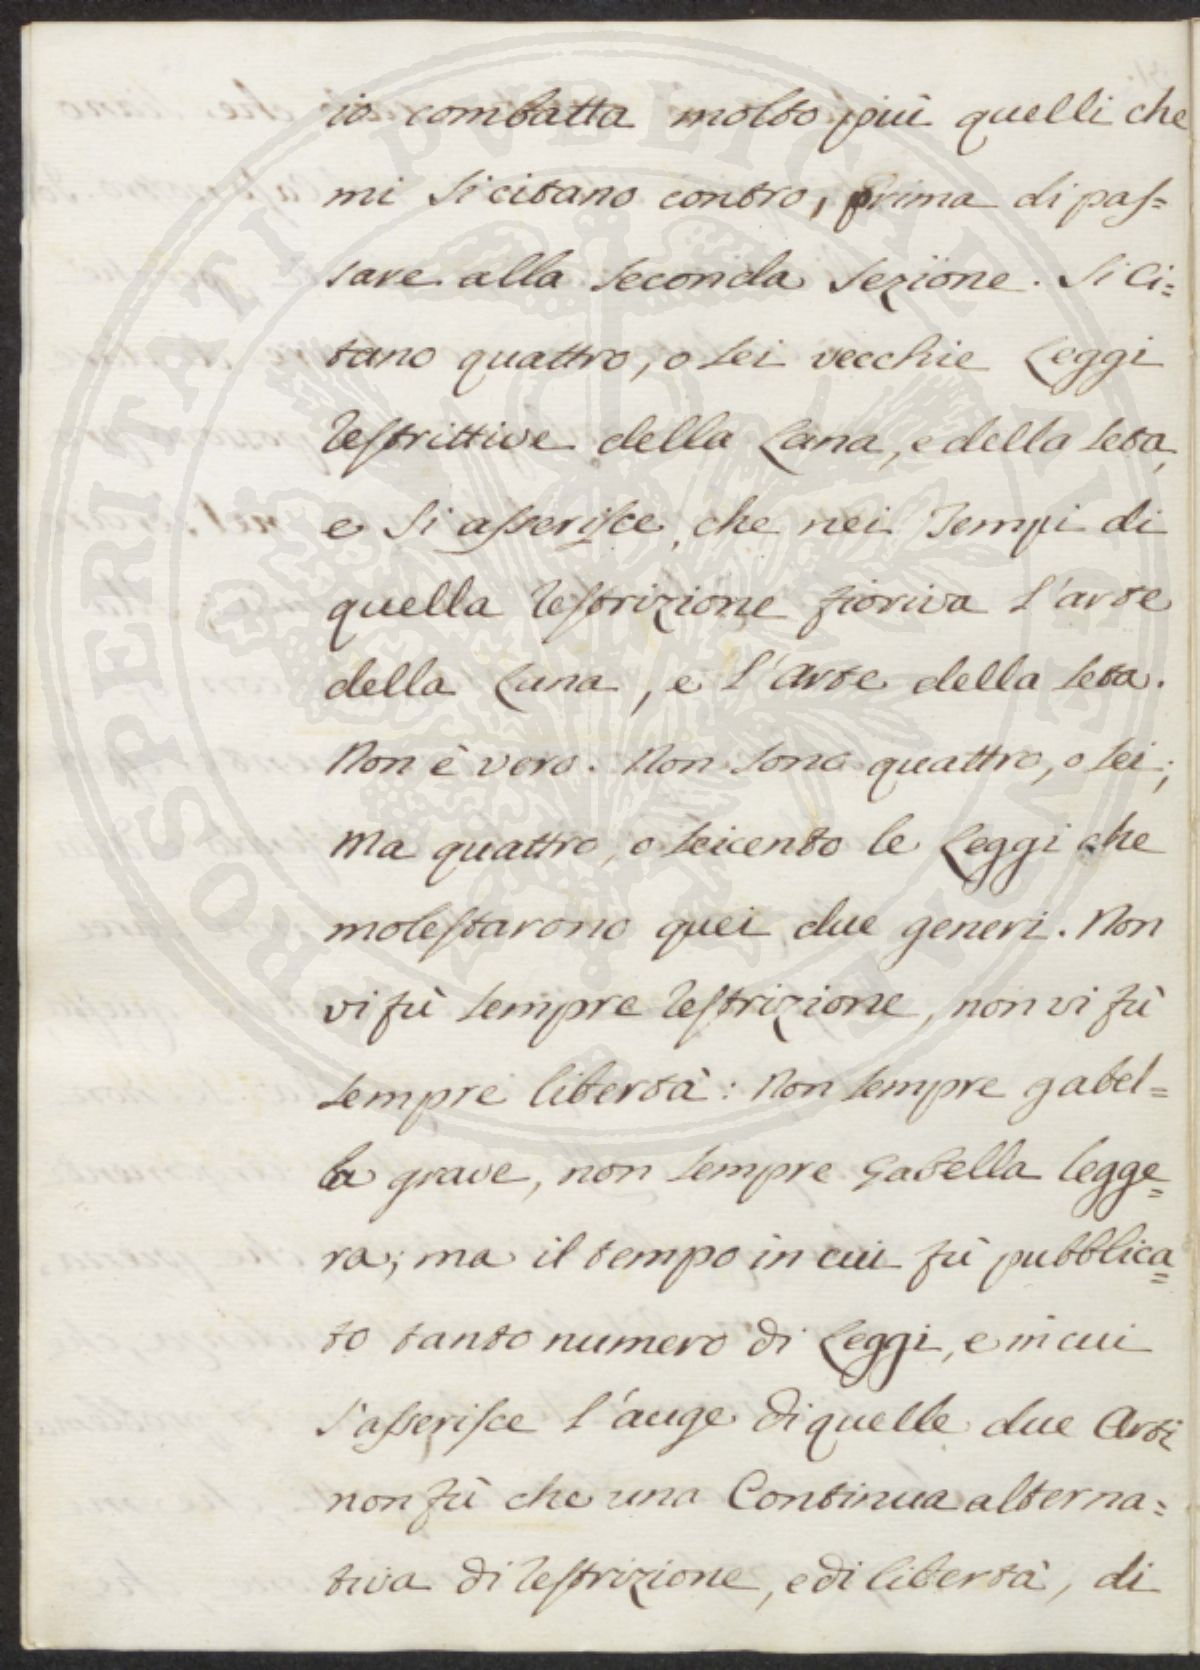 io combatta molto più quelli che
mi si citano contro, prima di pas=
sare alla seconda Sezione. Si Ci=
tano quattro, o sei vecchie Leggi
restrittive della Lana, e della seta,
e si asserisce, che nei Tempi di
quella restrizione fioriva l'arte
della Lana, e l'Arte della seta.
Non è vero. Non sono quattro, o sei;
Ma quattro, o seicento le Leggi che
molestarono quei due generi. Non
vi fù sempre restrizione, non vi fù
sempre libertà: Non sempre gabel=
la grave, non sempre Gabella legge=
ra; ma il tempo in cui fù pubblica=
to tanto numero di Leggi, e in cui
s'asserisce l'auge di quelle due Arti
non fù che una Continua alterna=
tiva di restrizione, e di libertà, di
PROSPERITATI PVBLICAE AVGENDAE